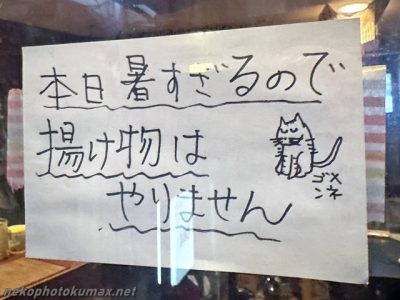 本日暑すぎるので
揚げ物は
やりません
ゴメ
ンネ
nekophotokumax.net